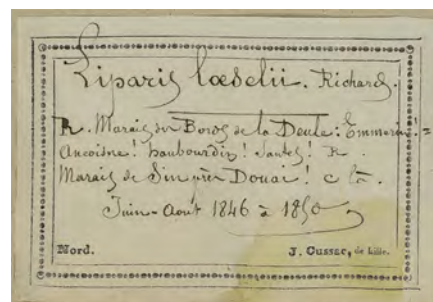 Liparis lœselii. Richard.
R. Marais sur Bords de la Deule: Emmerin! =
Ancoisne! haubourdin! Santes! R.
Marais de Sin près Douai! C
Juin-Août 1846 à 1850
Nord. J. Cussac, de Lille.